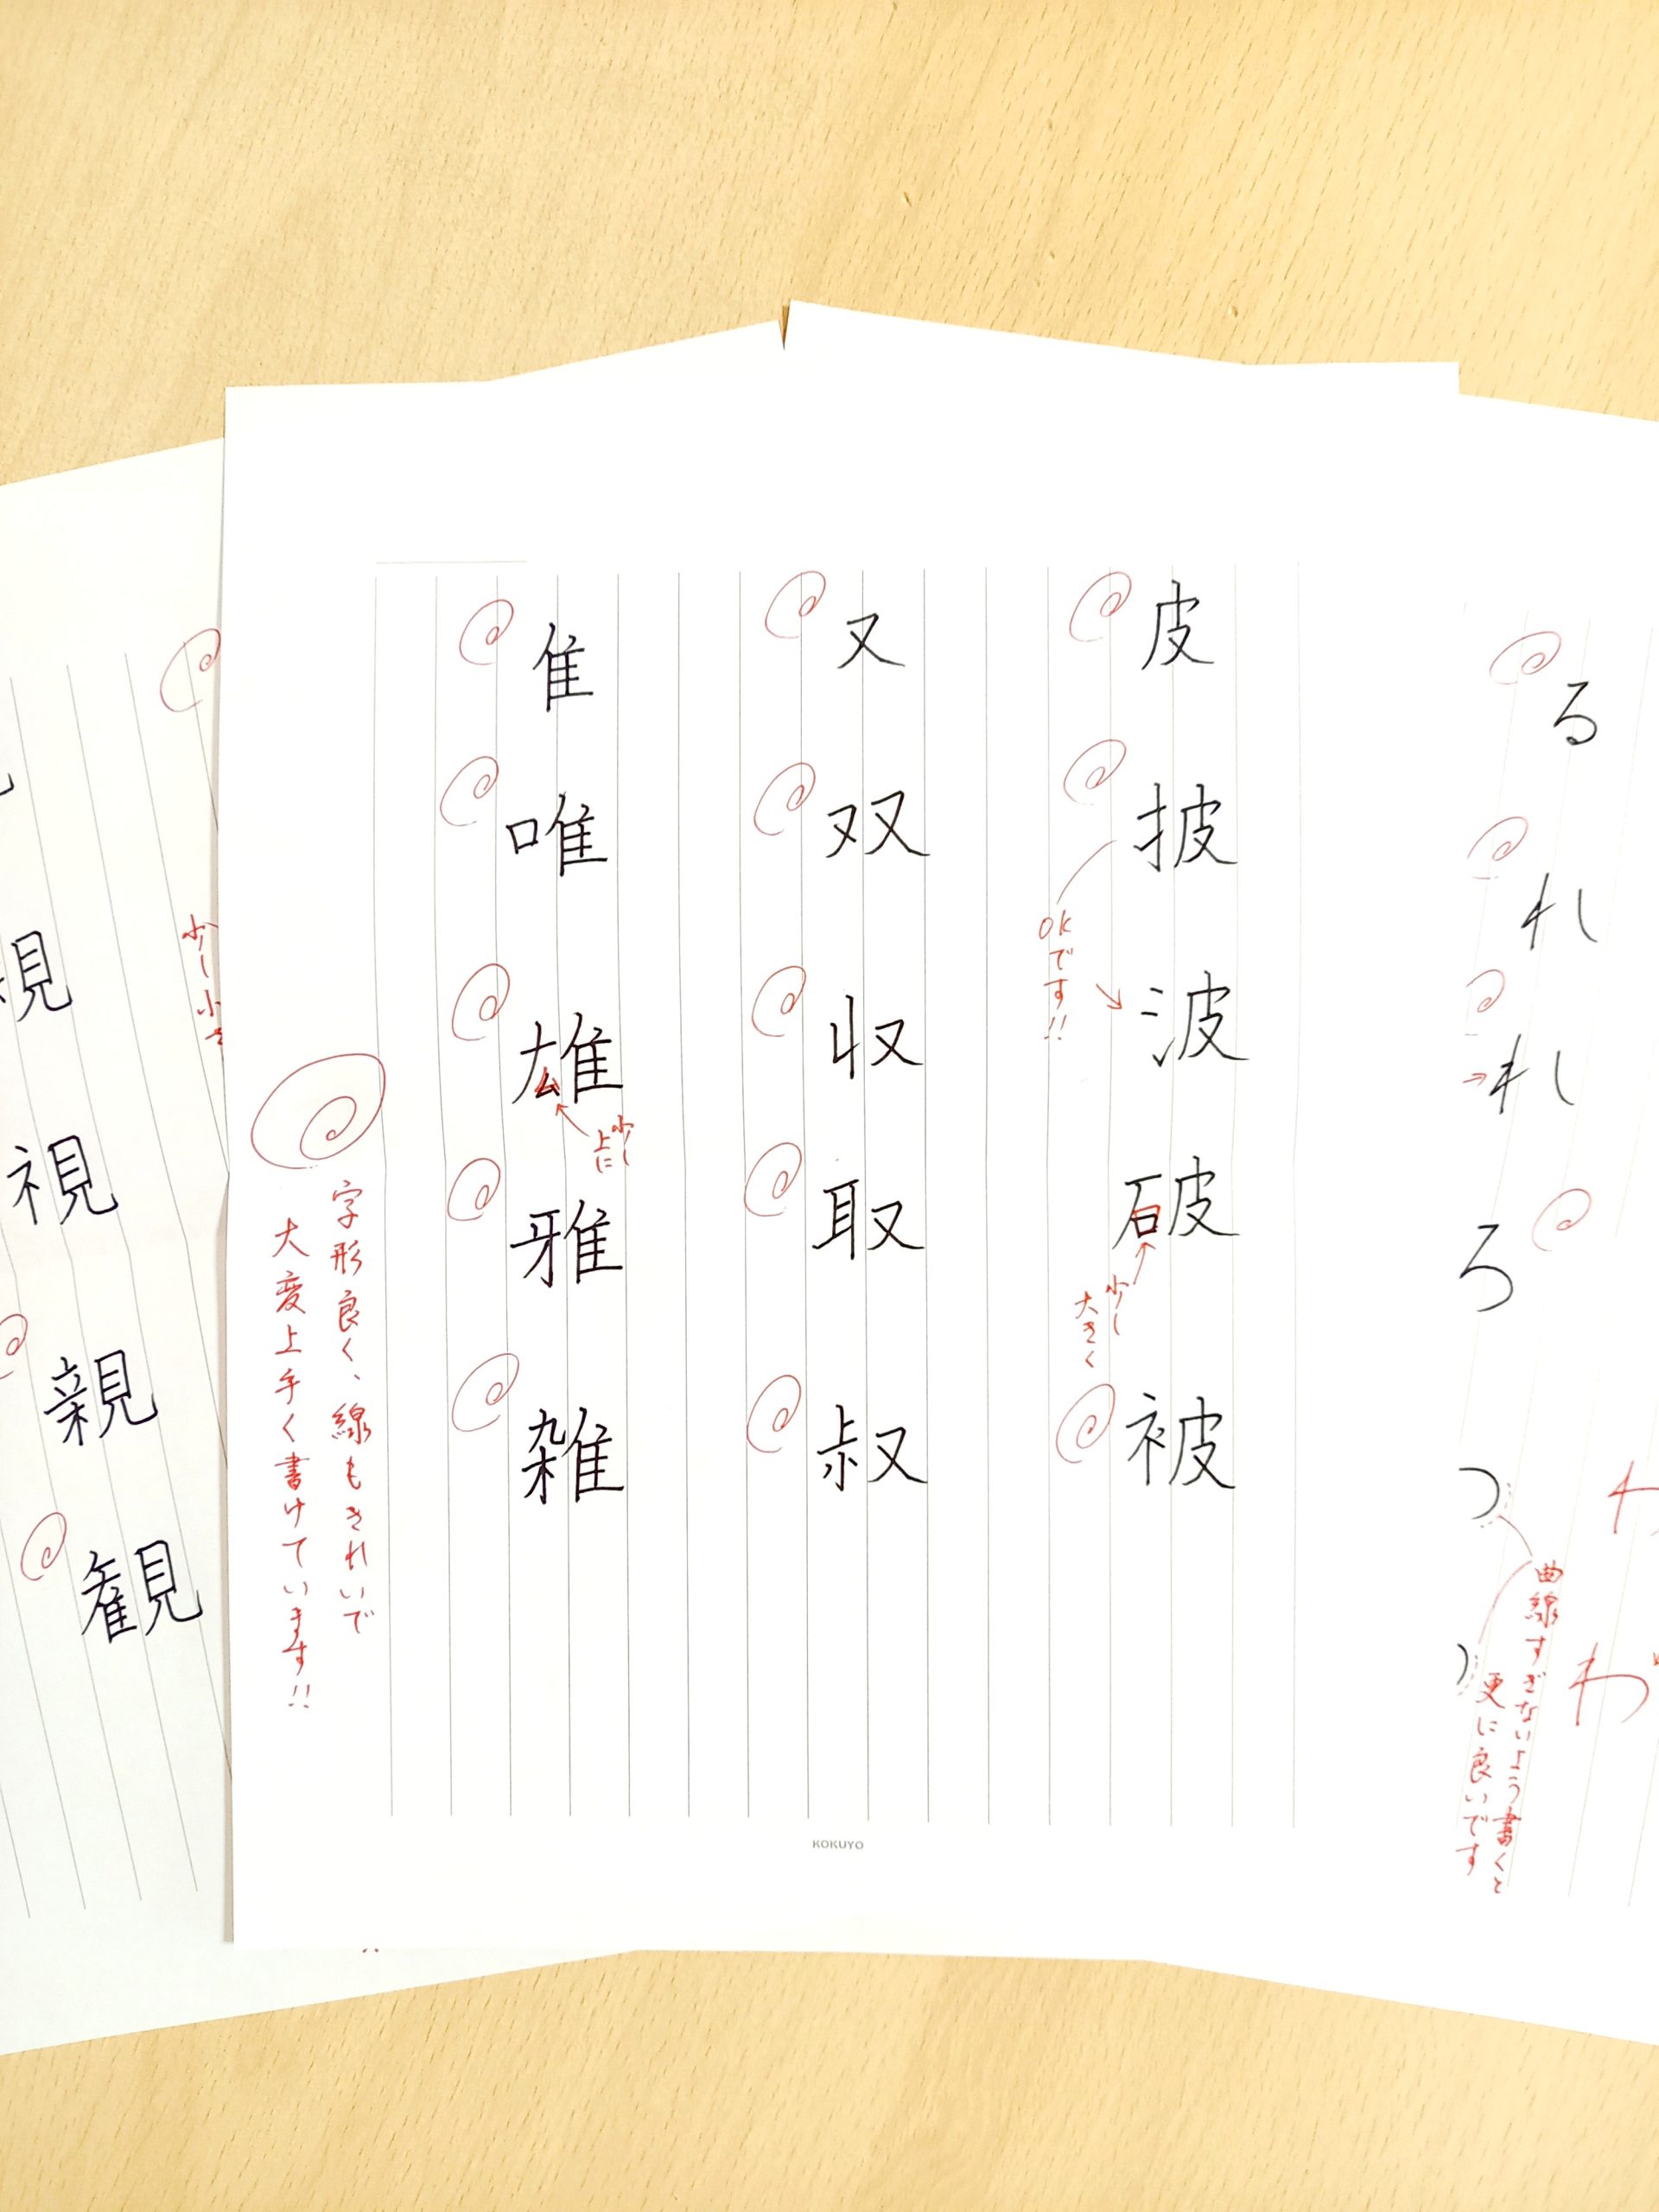 る
れ
れ
ろ
つ
わ
曲線すぎないよう書くと
更に良いです
皮
披
波
破
被
OKです!!
少し
大きく
又
双
収
取
叔
隹
唯
雄
雅
雑
少し
上に
字形良く、線もきれいで
大変上手く書けています!!
少し小さ
視
親
観
KOKUYO